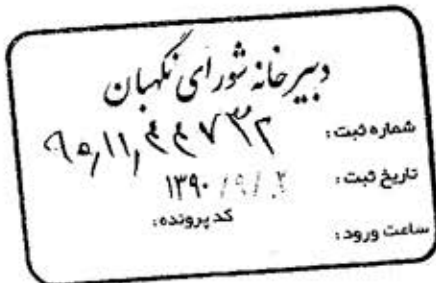 دبیرخانه شورای نگهبان
شماره ثبت: ۹۵٫۱۱٫۴۴۷۳۲
تاریخ ثبت: ۱۳۹۰/۹/۲
کد پرونده:
ساعت ورود: